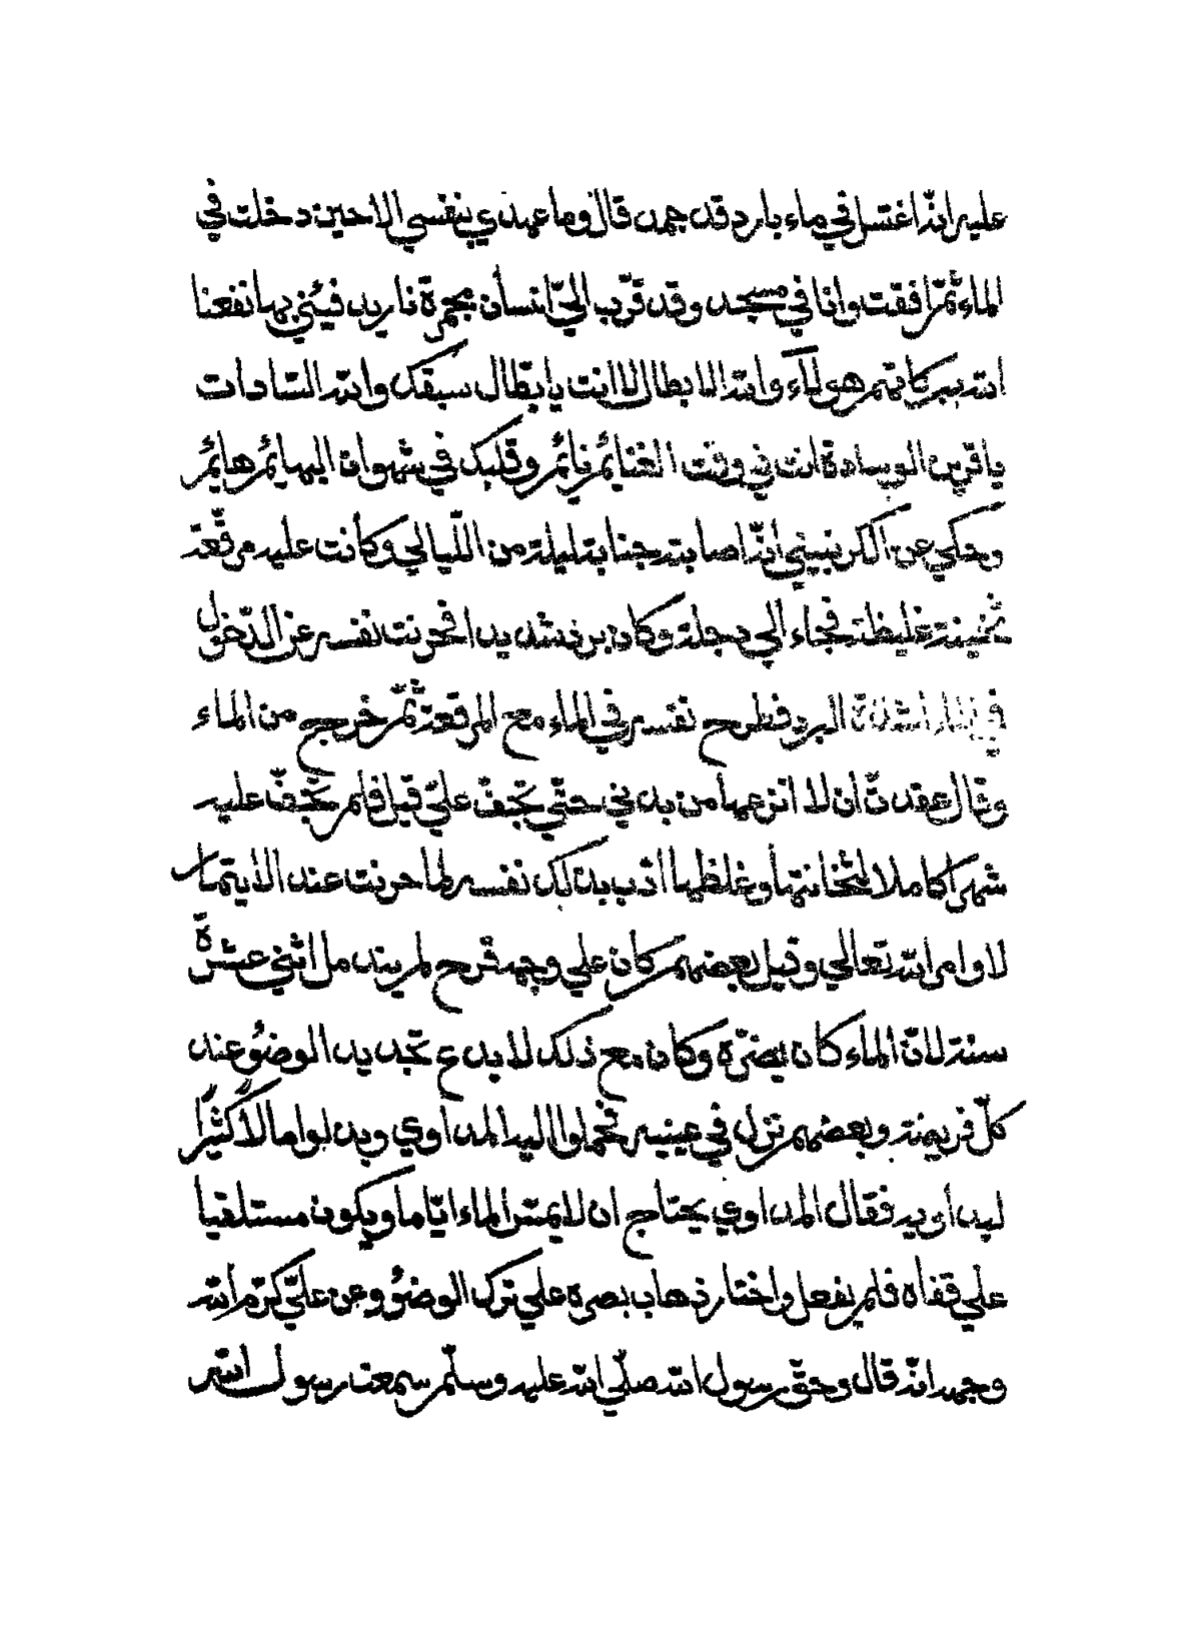 عليه انّه اغتسل في ماء بارد قد جمد قال وما عهدي بنفسي الا حين دخلت في
الماء ثمّ افقت وانا في مسجد وقد قرّب اليّ انسان مجمرة نار يدفيئني بها نفعنا
الله ببركاتهم هولآء والله الابطال لا انت يا بطّال سبقك والله السّادات
يا قرين الوسادة انت في وقت الغنائم نائم وقلبك في شهوات البهائم هائم
وحكي عن الكرنبيني أنّه اصابته جنابة ليلة من اللّيالي وكانت عليه مرقّعة
ثخينة غليظة فجاء الي دجلة وكان برد شديد افحرنت نفسه عن الدّخول
في الماء لشدّة البرد فطرح نفسه في الماء مع المرقعة ثمّ خرج من الماء
وقال عقدت أن لا انزعها من بدني حتّي تجفّ عليّ قيل فلم تجفّ عليه
شهرا كاملا لثخانتها وغلظها أدّب بذلك نفسه لما حرنت عند الايتمار
لاوامر الله تعالي وقيل بعضهم كان علي وجهه قرح لم يندمل اثني عشرة
سنة لانّ الماء كان يضرّه وكان مع ذلك لا يدع تجديد الوضوء عند
كلّ فريضة وبعضهم نزل في عينيه فحملوا اليه المداوي وبذلوا مالاً كثيرًا
ليداويه فقال المداوي يحتاج ان لا يمسّ الماء ايّاما ويكون مستلقيا
علي قفاه فلم يفعل واختار ذهاب بصره علي ترك الوضوء وعن عليّ كرّم الله
وجهه انّه قال وحقّ رسول الله صلّي الله عليه وسلّم سمعت رسول الله